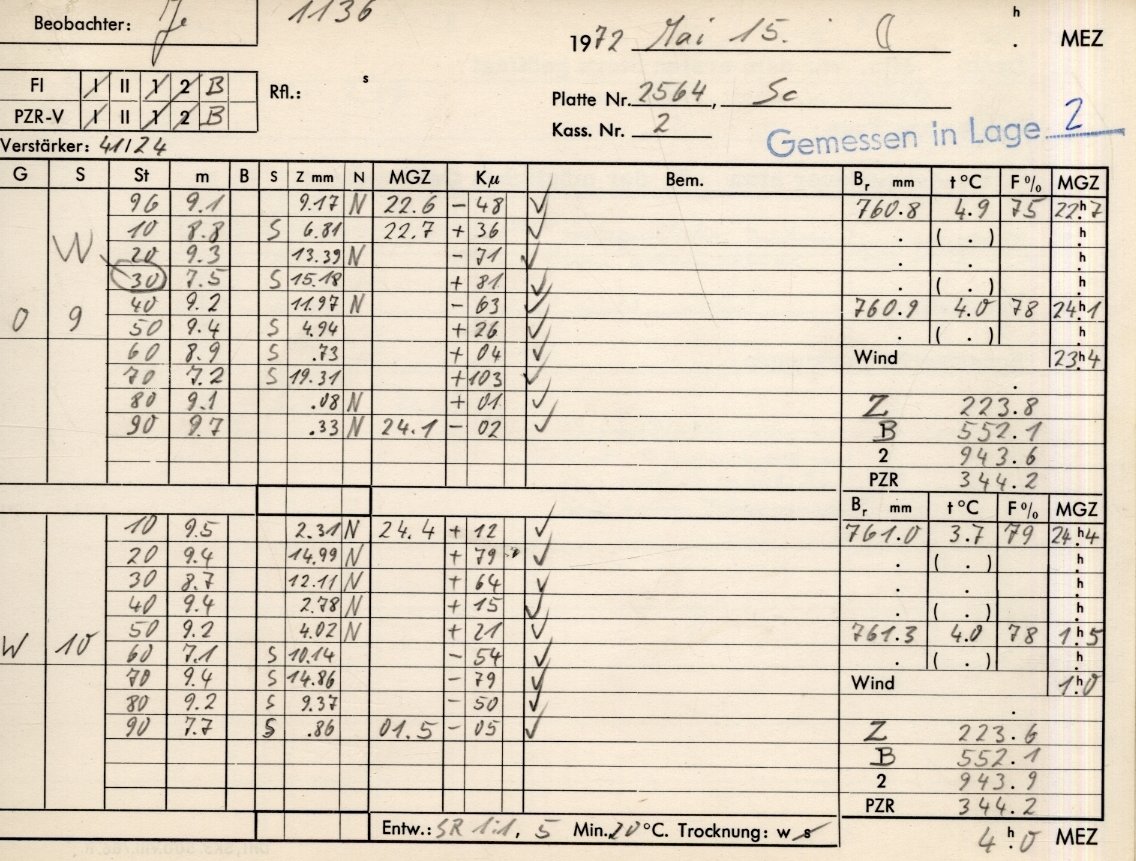 Beobachter: Je 1136
1972 Mai 15. ( . h MEZ
FI I II 1 2 B Rfl.: s
Platte Nr. 2564, Sc
PZR-V I II 1 2 B
Kass. Nr. 2
Gemessen in Lage 2
Verstärker: 41/24
G S St m B S Z mm N MGZ Kµ Bem. Br mm t °C F % MGZ
96 9.1 9.17 N 22.6 - 48 √ 760.8 4.9 75 22h.7
10 8.8 S 6.81 22.7 + 36 √ . ( . ) h.
W 20 9.3 13.39 N - 71 √ . h.
30 7.5 S 15.18 + 81 √ . ( . ) h.
40 9.2 11.97 N - 63 √ 760.9 4.0 78 24h.1
0 9 50 9.4 S 4.94 + 26 √ ( . ) h.
60 8.9 S .73 + 04 √ Wind 23h.4
70 7.2 S 19.31 + 103 √ .
80 9.1 .08 N + 01 √ Z 223.8
90 9.7 .33 N 24.1 - 02 √ B 552.1
2 943.6
PZR 344.2
Br mm t °C F % MGZ
10 9.5 2.31 N 24.4 + 12 √ 761.0 3.7 79 24h.4
20 9.4 14.99 N + 79 √ . ( . ) h.
30 8.7 12.11 N + 64 √ . h.
40 9.4 2.78 N + 15 √ . ( . ) h.
W 10 50 9.2 4.02 N + 21 √ 761.3 4.0 78 1h.5
60 7.1 S 10.14 - 54 √ . ( . ) h.
70 9.4 S 14.86 - 79 √ Wind 1h.0
80 9.2 S 9.37 - 50 √ .
90 7.7 S .86 01.5 - 05 √ Z 223.6
B 552.1
2 943.9
PZR 344.2
Entw.: SR 1:1, 5 Min. 20 °C. Trocknung: w s
4h.0 MEZ